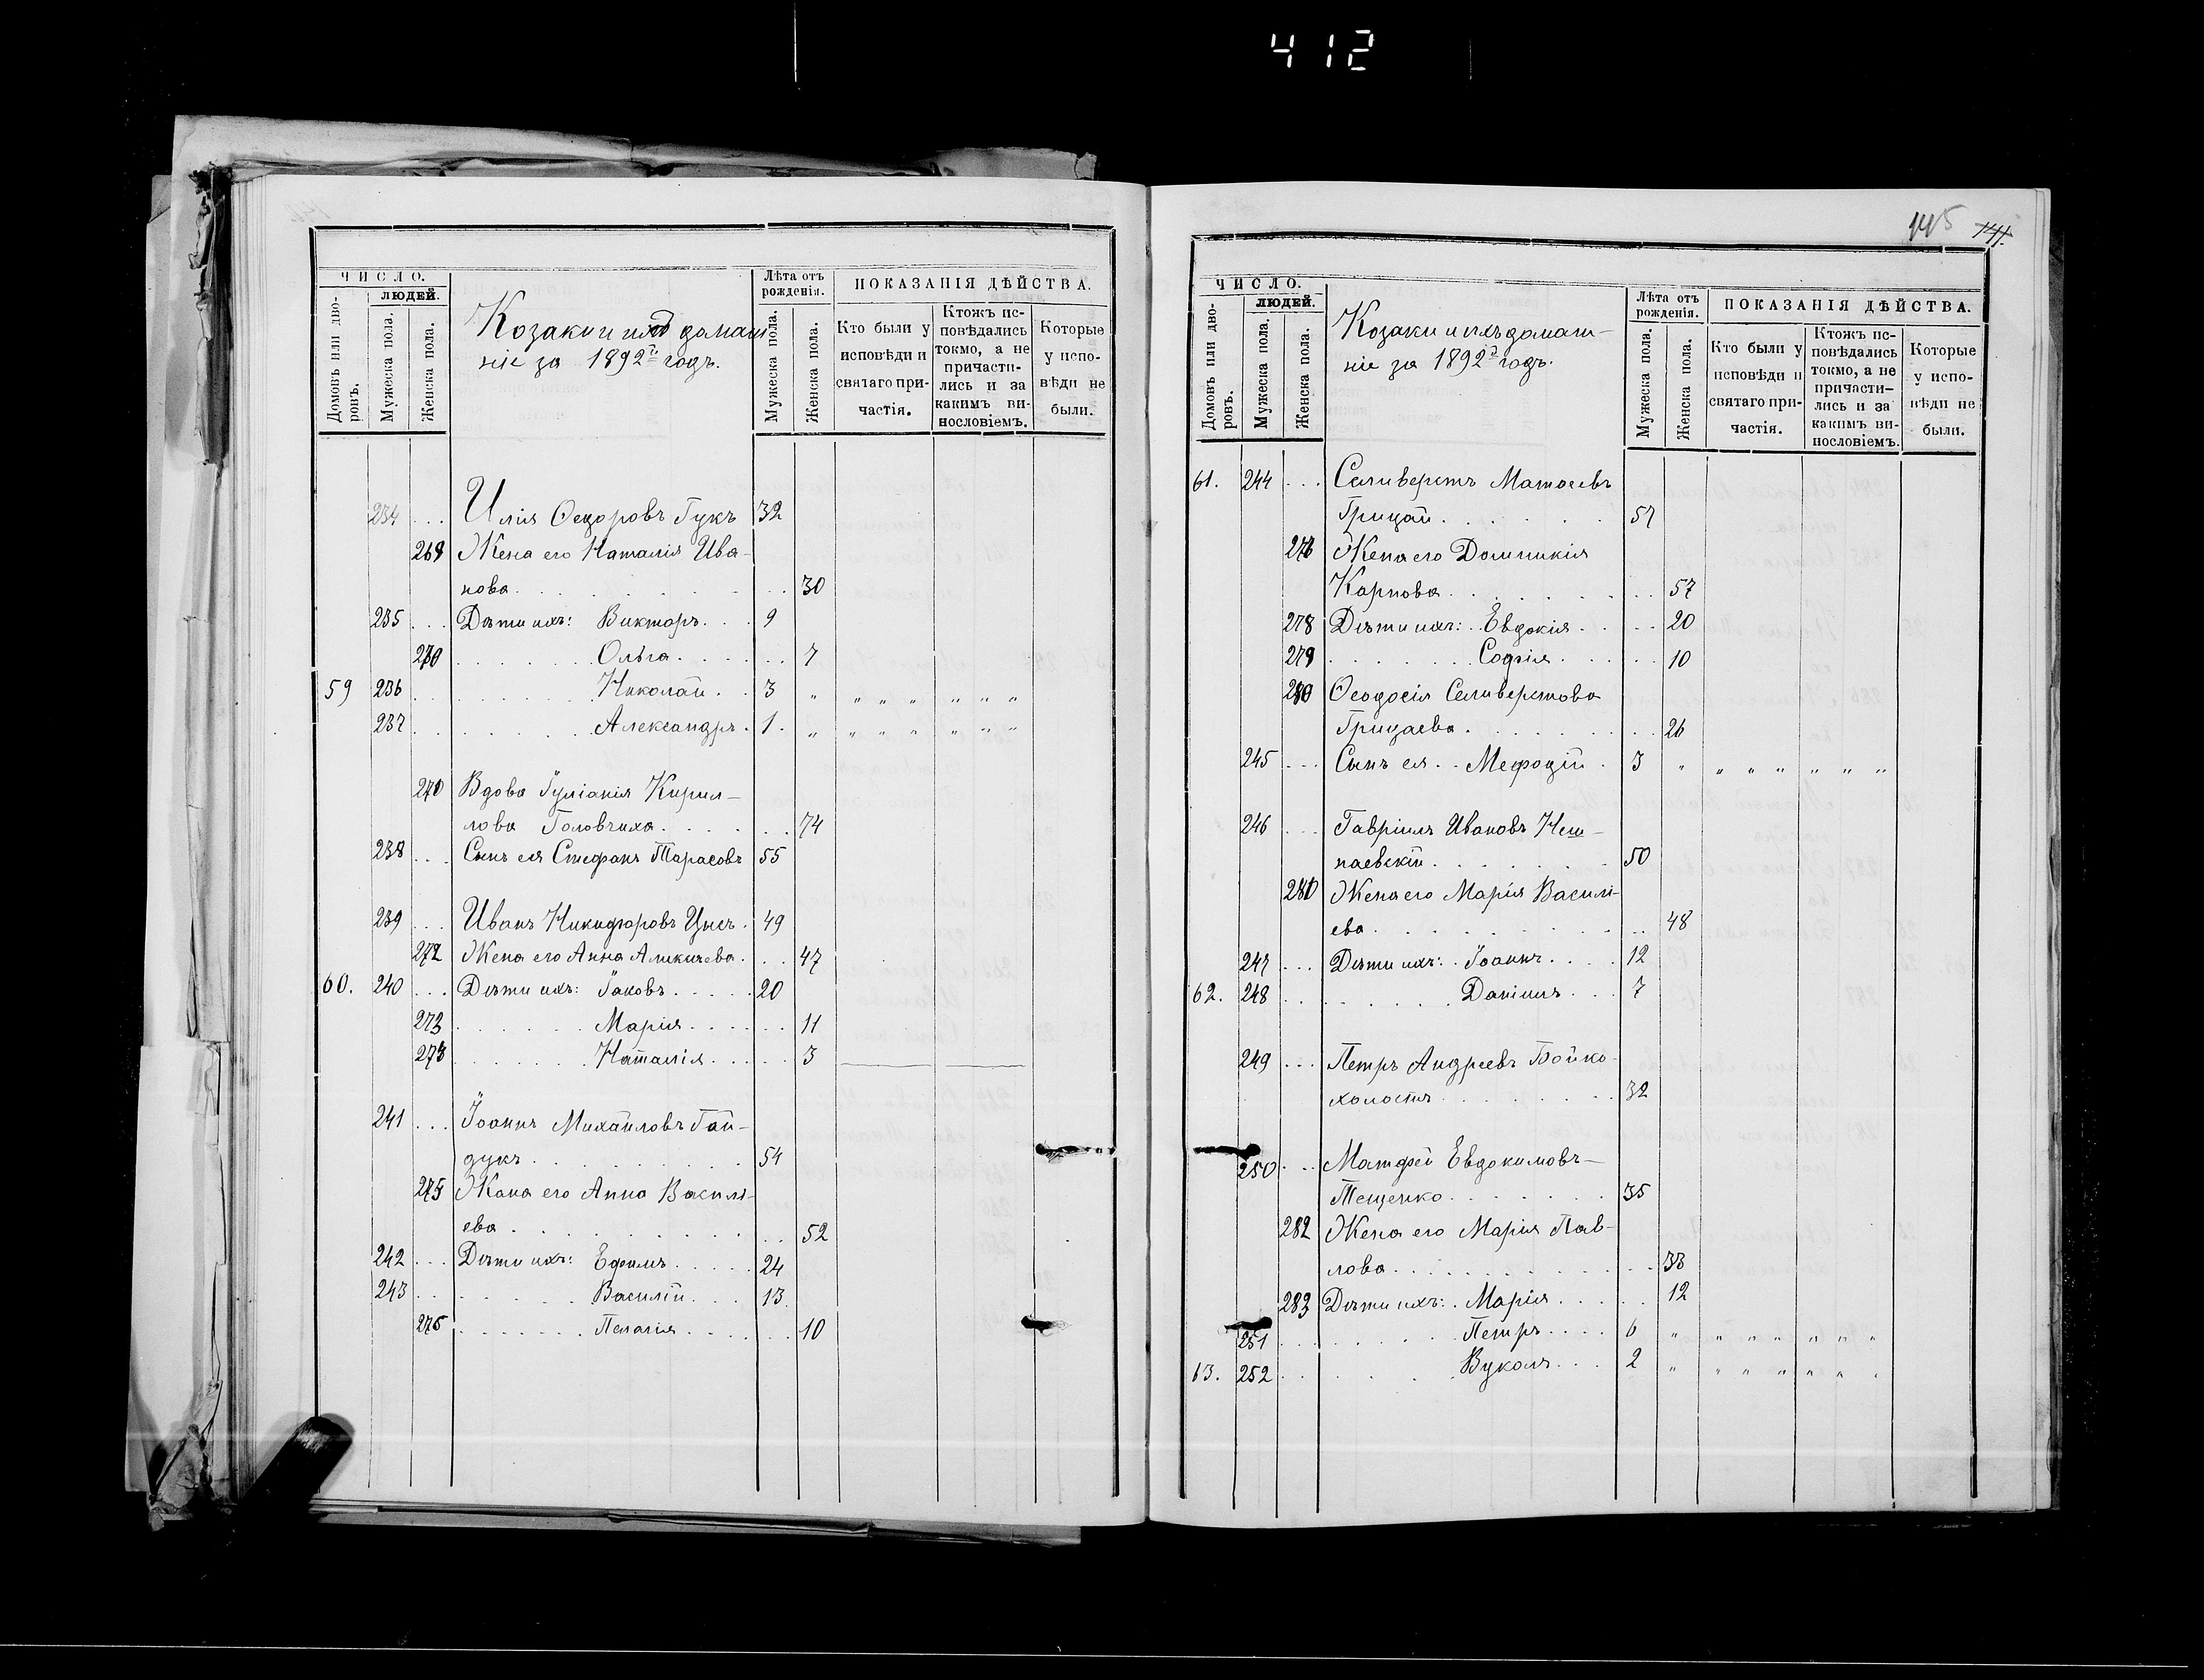 412
ЧИСЛО.
Домовъ или дворовъ.
ЛЮДЕЙ.
Мужеска пола.
Женска пола.
Козаки и ихъ домаш
ніе за 1892й годъ.
Лѣта отъ рожденія.
Мужеска пола.
Женска пола.
ПОКАЗАНІЯ ДѢЙСТВА.
Кто были у исповѣди и святаго причастія.
Ктожъ исповѣдались токмо, а не причастились и за какимъ винословіемъ.
Которые у исповѣди не были.
234 ... Илія Ѳедоровъ Гукъ 32
269 Жена его Наталія Ива-
нова . . . 30
235 ... Дѣти ихъ: Викторъ . . . 9
270 . . . Ольга . . . 7
59 236 . . . Николай . . 3 " " " " " " "
237 . . . Александръ . 1. " " " " " " "
Вдова Іуліанія Кирил-
лова Головчиха . . . 74
238 ... Сынъ ея Стефанъ Тарасовъ 55
239 ... Иванъ Никифоровъ 49
272 Жена его Анна . . . 47
60. 240 ... Дѣти ихъ: Іаковъ . . . 20
273 . . . Марія . . . 11
. . . Наталія . . . 3
241 ... Іоаннъ Михайловъ Гай-
дукъ . . . 54
275 Жена его Анна Василі-
ева . . . 52
242 ... Дѣти ихъ: Ефимъ . . . 24
243 . . . Василій . . . 13
276 . . . Пелагія . . . 10
145 141.
ЧИСЛО.
Домовъ или дворовъ.
ЛЮДЕЙ.
Мужеска пола.
Женска пола.
Козаки и ихъ домаш-
ніе за 1892й годъ.
Лѣта отъ рожденія.
Мужеска пола.
Женска пола.
ПОКАЗАНІЯ ДѢЙСТВА.
Кто были у исповѣди и святаго причастія.
Ктожъ исповѣдались токмо, а не причастились и за какимъ винословіемъ.
Которые у исповѣди не были.
61. 244 ... Селиверстъ Матѳеевъ
Грицай . . . 57
Жена его Домникія
Карпова . . . 57
278 Дѣти ихъ: Евдокія . . . 20
279 . . . Софія . . . 10
280 Ѳеодосія Селиверстова
Грицаева . . . 26
245 ... Сынъ ея . . Мефодій . 3 " " " " " " "
246 ... Гавріилъ Ивановъ
50
281 Жена его Марія Василі-
ева . . . 48
247 ... Дѣти ихъ: Іоаннъ . . . 12
62. 248 . . . Даніилъ . . . 7
249 ... Петръ Андреевъ Бойко
холостъ . . . 32
250 ... Матфей Евдокимовъ
Тещенко . . . 35
282 Жена его Марія Пав-
лова . . . 33
283 Дѣти ихъ: Марія . . . 12
251 . . . Петръ . . . 6 " " " " " " "
63. 252 . . . Вуколъ . . . 2 " " " " " " "